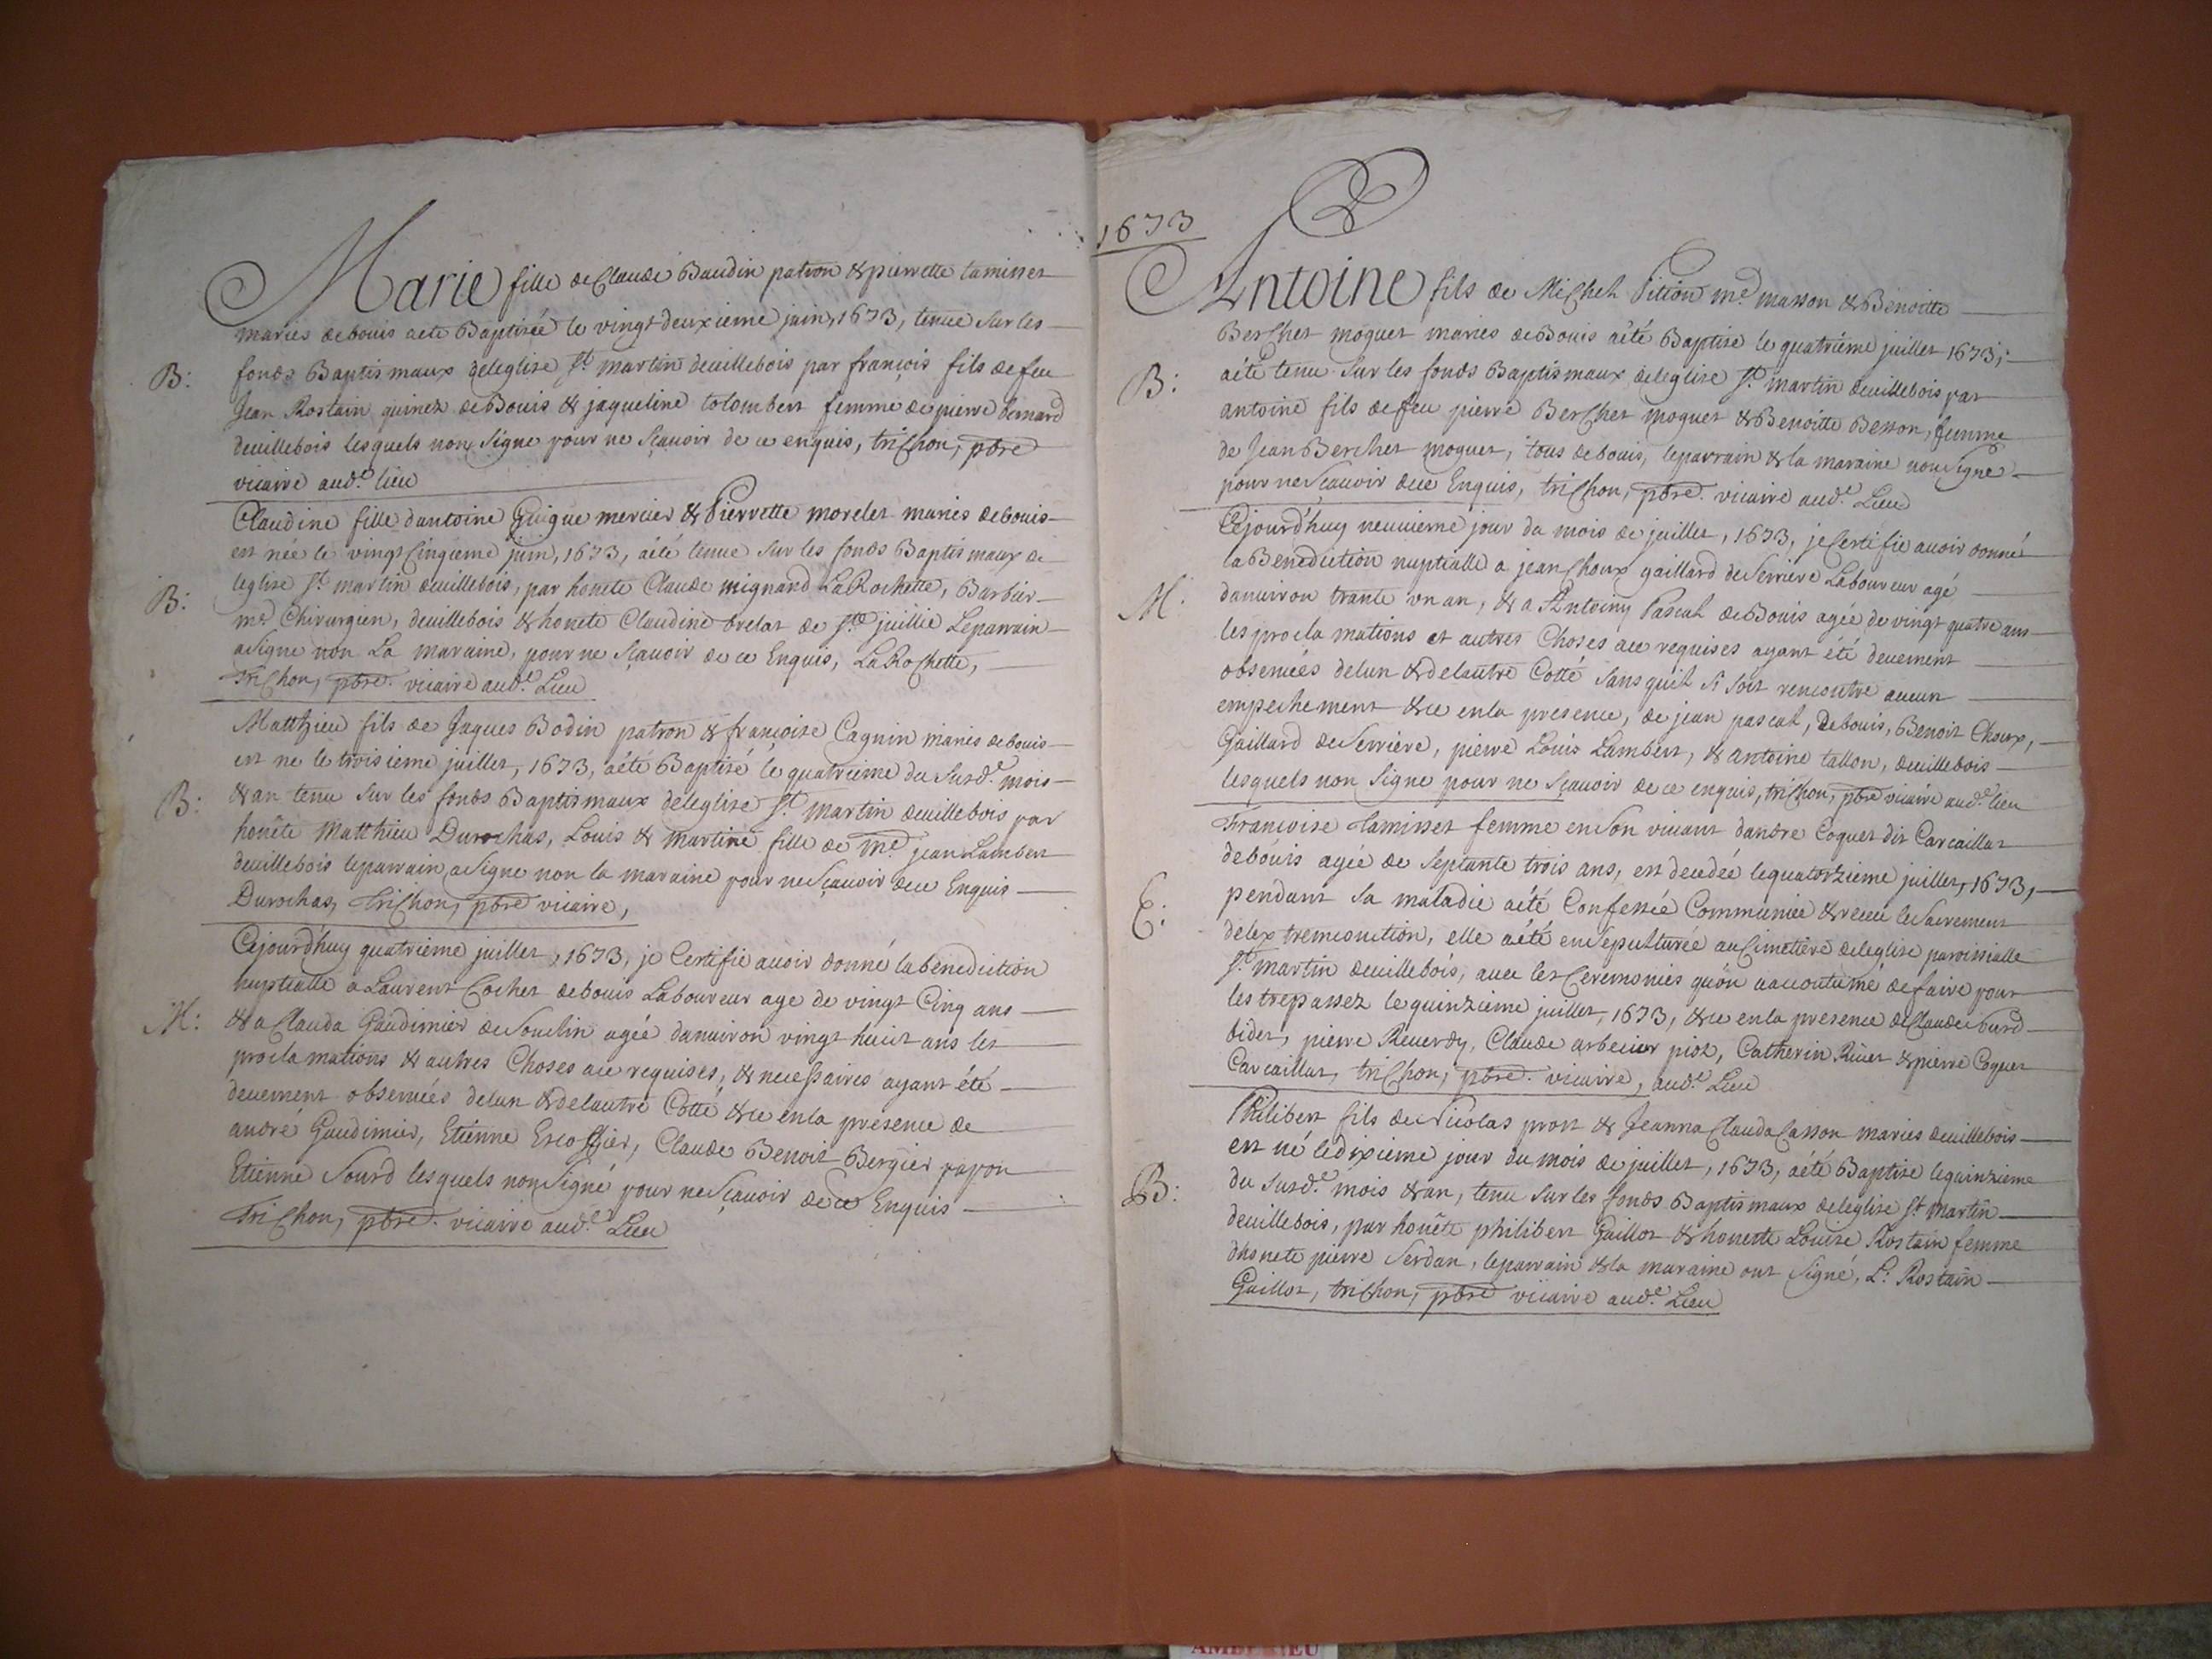 Marie fille de Claude Baudin patron & pierrette tamisset
maries debouis aete Baptisée le vingt deuxieme juin, 1673, tenue sur les
B: fonds Baptismaux deleglise St martin deuillebois par françois fils defeu
Jean Rostain quinet deBouis & jaqueline tolombert femme de pierre bernard
deuillebois lesquels nont signe pour ne sçauoir de ce enquis, trichon, pbre
vicaire aud.e lieu
Claudine fille dantoine Guigue mercier & Pierrette morelet mariés debouis
est née le vingt Cinqieme juin, 1673, aété tenue sur les fonds Baptismaux de
B: leglise St martin deuillebois, par honete Claude mignard LaRochette, Barbier
me Chirurgien, deuillebois & honete Claudine brelat de Ste juillie Leparrain
asigne non La maraine, pour ne sçauoir de ce Enquis, LaRochette,
Trichon, pbre. vicaire aud.e Lieu
Matthieu fils de Jaques Bodin patron & françoise Cagnin mariés debouis
est ne le troisieme juillet, 1673, aété Baptisé le quatrieme du susd.e mois
B: & an tenu sur les fonds Baptismaux deleglise St martin deuillebois par
honête Matthieu Durochas, Louis & martine fille de me jean Lambert
deuillebois leparrain asigne non la maraine pour nesçauoir dece Enquis
Durochas, Trichon, pbre vicaire,
Cejourdhuy quatrieme juillet, 1673, je Certifie auoir donné labenediction
nuptialle a Laurent Cochet debouis Laboureur age de vingt Cinq ans
M: & a Clauda Gaudimier deSouclin agée danuiron vingt huict ans les
proclamations & autres Choses ace requises, & necessaires ayant été
deuement obseruées delun & delautre Cotté & ce enla presence de
andré Gaudimier, Etienne Escoffier, Claude Benoit Bergier papon
Etienne Sourd lesquels nont signé pour nesçauoir de ce Enquis
Trichon, pbre. vicaire aud.e Lieu
1673
Antoine fils de Michel Pition me masson & Benoitte
Berchet moguet maries deBouis aété Baptise le quatriéme juillet 1673,
B: aété tenu sur les fonds Baptismaux deleglise St martin deuillebois par
antoine fils defeu pierre Berchet moguet & Benoitte Besson, femme
de Jean Berchet moguet, tous debouis, leparrain & la maraine nont signe
pour nesçauoir dece Enquis, trichon, pbre. vicaire aud.e Lieu
Cejourdhuy neuuieme jour du mois de juillet, 1673, je Certifie auoir donné
la Benediction nuptialle a jean Choux gaillard deSerriere Laboureur agé
M: danuiron trante vn an, & a Antoiny Pascal deBouis agée de vingt quatre ans
les proclamations et autres Choses ace requises ayant été deuement
obseruées delun & delautre Cotté sans quil si soit rencontre aucun
empechement & ce enla presence, de jean pascal, debouis, Benoit Choux,
Gaillard deSerriere, pierre Louis Lambert, & antoine tallon, deuillebois
lesquels non signe pour ne sçauoir de ce enquis, trichon, pbre vicaire aud.e lieu
Françoise tamisset femme enson viuant dandre Coquet dit Carcaillat
debouis agée de septante trois ans, est decedée lequatorzieme juillet, 1673,
E: pendant sa maladie aété Confessée Communiée & receu lesacrement
delextremeonction, elle aété ensepulturée au Cimetière deleglise paroissialle
St martin deuillebois, auec les Ceremonies quôn aacoutumé defaire pour
les trepassez lequinzieme juillet, 1673, & ce enla presence deClaude burd
bidet, pierre Reuerdy, Claude arbecier piot, Catherin Riuet & pierre Coquet
Carcaillat, trichon, pbre. vicaire, aud.e Lieu
Philibert fils deNicolas prost & Jeanna Clauda Casson maries deuillebois
est né ledixieme jour du mois de juillet, 1673, aété Baptise lequinzieme
B: du susd.e mois & an, tenu sur les fonds Baptismaux deleglise St martin
deuillebois, par honête philibert Gaillot & honeste Louise Rostain femme
dhonete pierre Serdan, leparrain & la maraine ont signé, L: Rostain
Gaillot, trichon, pbre vicaire aud.e Lieu